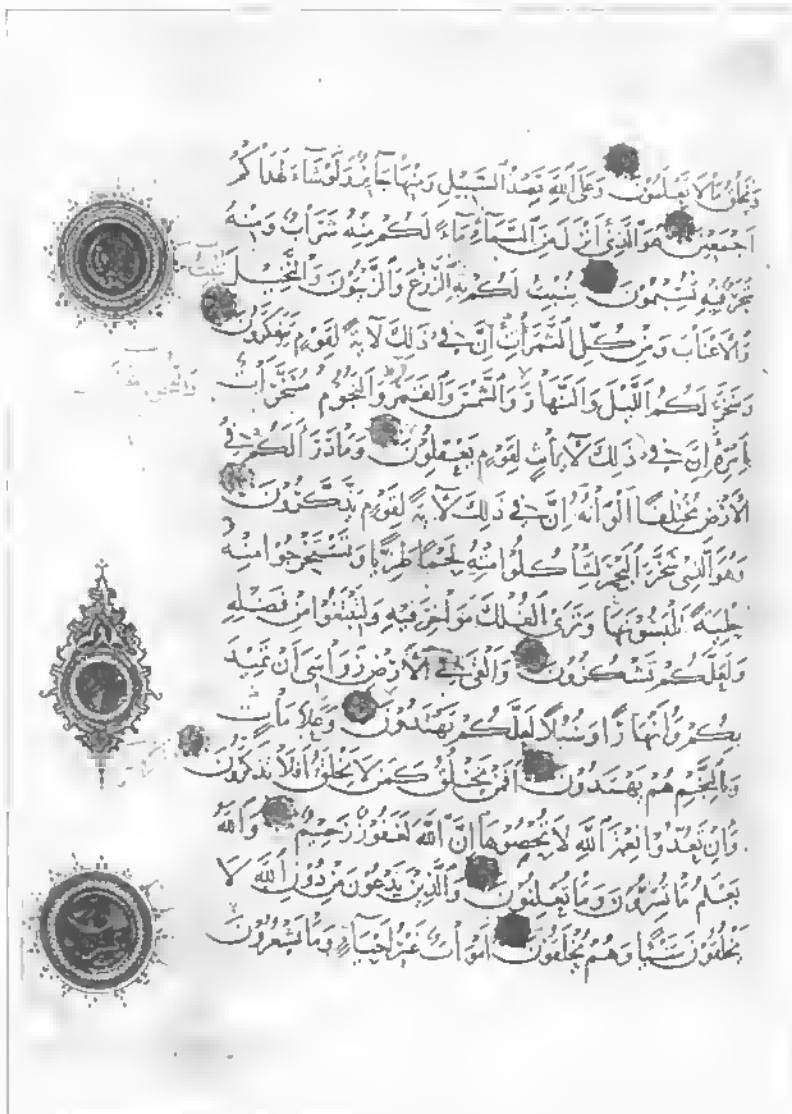 وَيَخْلُقُ مَا لَا تَعْلَمُونَ وَعَلَى اللَّهِ قَصْدُ السَّبِيلِ وَمِنْهَا جَائِرٌ وَلَوْ شَاءَ لَهَدَاكُمْ
أَجْمَعِينَ هُوَ الَّذِي أَنْزَلَ مِنَ السَّمَاءِ مَاءً لَكُمْ مِنْهُ شَرَابٌ وَمِنْهُ
شَجَرٌ فِيهِ تُسِيمُونَ يُنْبِتُ لَكُمْ بِهِ الزَّرْعَ وَالزَّيْتُونَ وَالنَّخِيلَ
وَالْأَعْنَابَ وَمِنْ كُلِّ الثَّمَرَاتِ إِنَّ فِي ذَلِكَ لَآيَةً لِقَوْمٍ يَتَفَكَّرُونَ
وَسَخَّرَ لَكُمُ اللَّيْلَ وَالنَّهَارَ وَالشَّمْسَ وَالْقَمَرَ وَالنُّجُومُ مُسَخَّرَاتٌ
بِأَمْرِهِ إِنَّ فِي ذَلِكَ لَآيَاتٍ لِقَوْمٍ يَعْقِلُونَ وَمَا ذَرَأَ لَكُمْ فِي
الْأَرْضِ مُخْتَلِفًا أَلْوَانُهُ إِنَّ فِي ذَلِكَ لَآيَةً لِقَوْمٍ يَذَّكَّرُونَ
وَهُوَ الَّذِي سَخَّرَ الْبَحْرَ لِتَأْكُلُوا مِنْهُ لَحْمًا طَرِيًّا وَتَسْتَخْرِجُوا مِنْهُ
حِلْيَةً تَلْبَسُونَهَا وَتَرَى الْفُلْكَ مَوَاخِرَ فِيهِ وَلِتَبْتَغُوا مِنْ فَضْلِهِ
وَلَعَلَّكُمْ تَشْكُرُونَ وَأَلْقَى فِي الْأَرْضِ رَوَاسِيَ أَنْ تَمِيدَ
بِكُمْ وَأَنْهَارًا وَسُبُلًا لَعَلَّكُمْ تَهْتَدُونَ وَعَلَامَاتٍ
وَبِالنَّجْمِ هُمْ يَهْتَدُونَ أَفَمَنْ يَخْلُقُ كَمَنْ لَا يَخْلُقُ أَفَلَا تَذَكَّرُونَ
وَإِنْ تَعُدُّوا نِعْمَةَ اللَّهِ لَا تُحْصُوهَا إِنَّ اللَّهَ لَغَفُورٌ رَحِيمٌ وَاللَّهُ
يَعْلَمُ مَا تُسِرُّونَ وَمَا تُعْلِنُونَ وَالَّذِينَ يَدْعُونَ مِنْ دُونِ اللَّهِ لَا
يَخْلُقُونَ شَيْئًا وَهُمْ يُخْلَقُونَ أَمْوَاتٌ غَيْرُ أَحْيَاءٍ وَمَا يَشْعُرُونَ